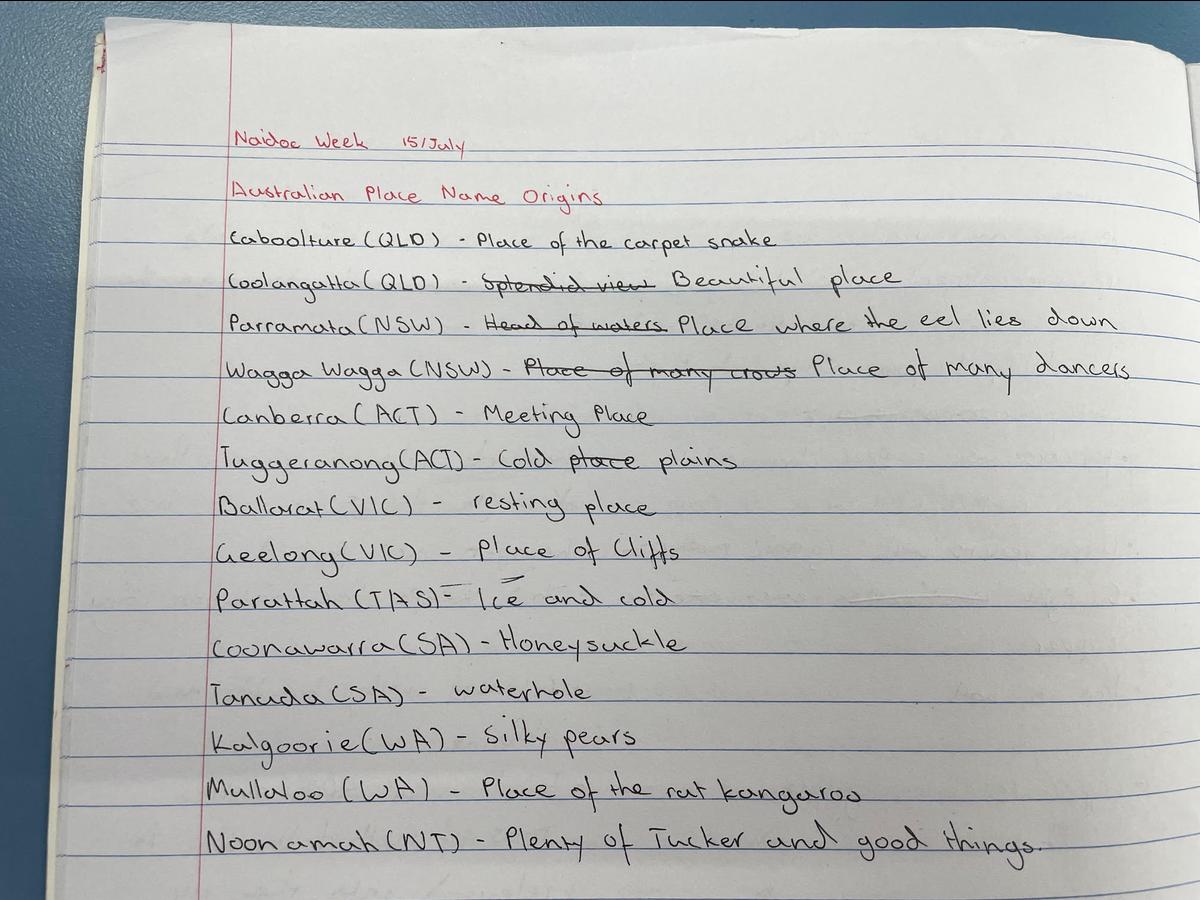 Naidoc Week 15/July
Australian Place Name Origins
Caboolture (QLD) - Place of the carpet snake
Coolangatta (QLD) - Splendid view Beautiful place
Parramata (NSW) - Head of waters Place where the eel lies down
Wagga Wagga (NSW) - Place of many crows Place of many dancers
Canberra (ACT) - Meeting Place
Tuggeranong (ACT) - Cold place plains
Ballarat (VIC) - resting place
Geelong (VIC) - Place of Cliffs
Parattah (TAS) - Ice and cold
Coonawarra (SA) - Honeysuckle
Tanuda (SA) - waterhole
Kalgoorie (WA) - Silky pears
Mullaloo (WA) - Place of the rat kangaroo
Noonamah (NT) - Plenty of Tucker and good things.